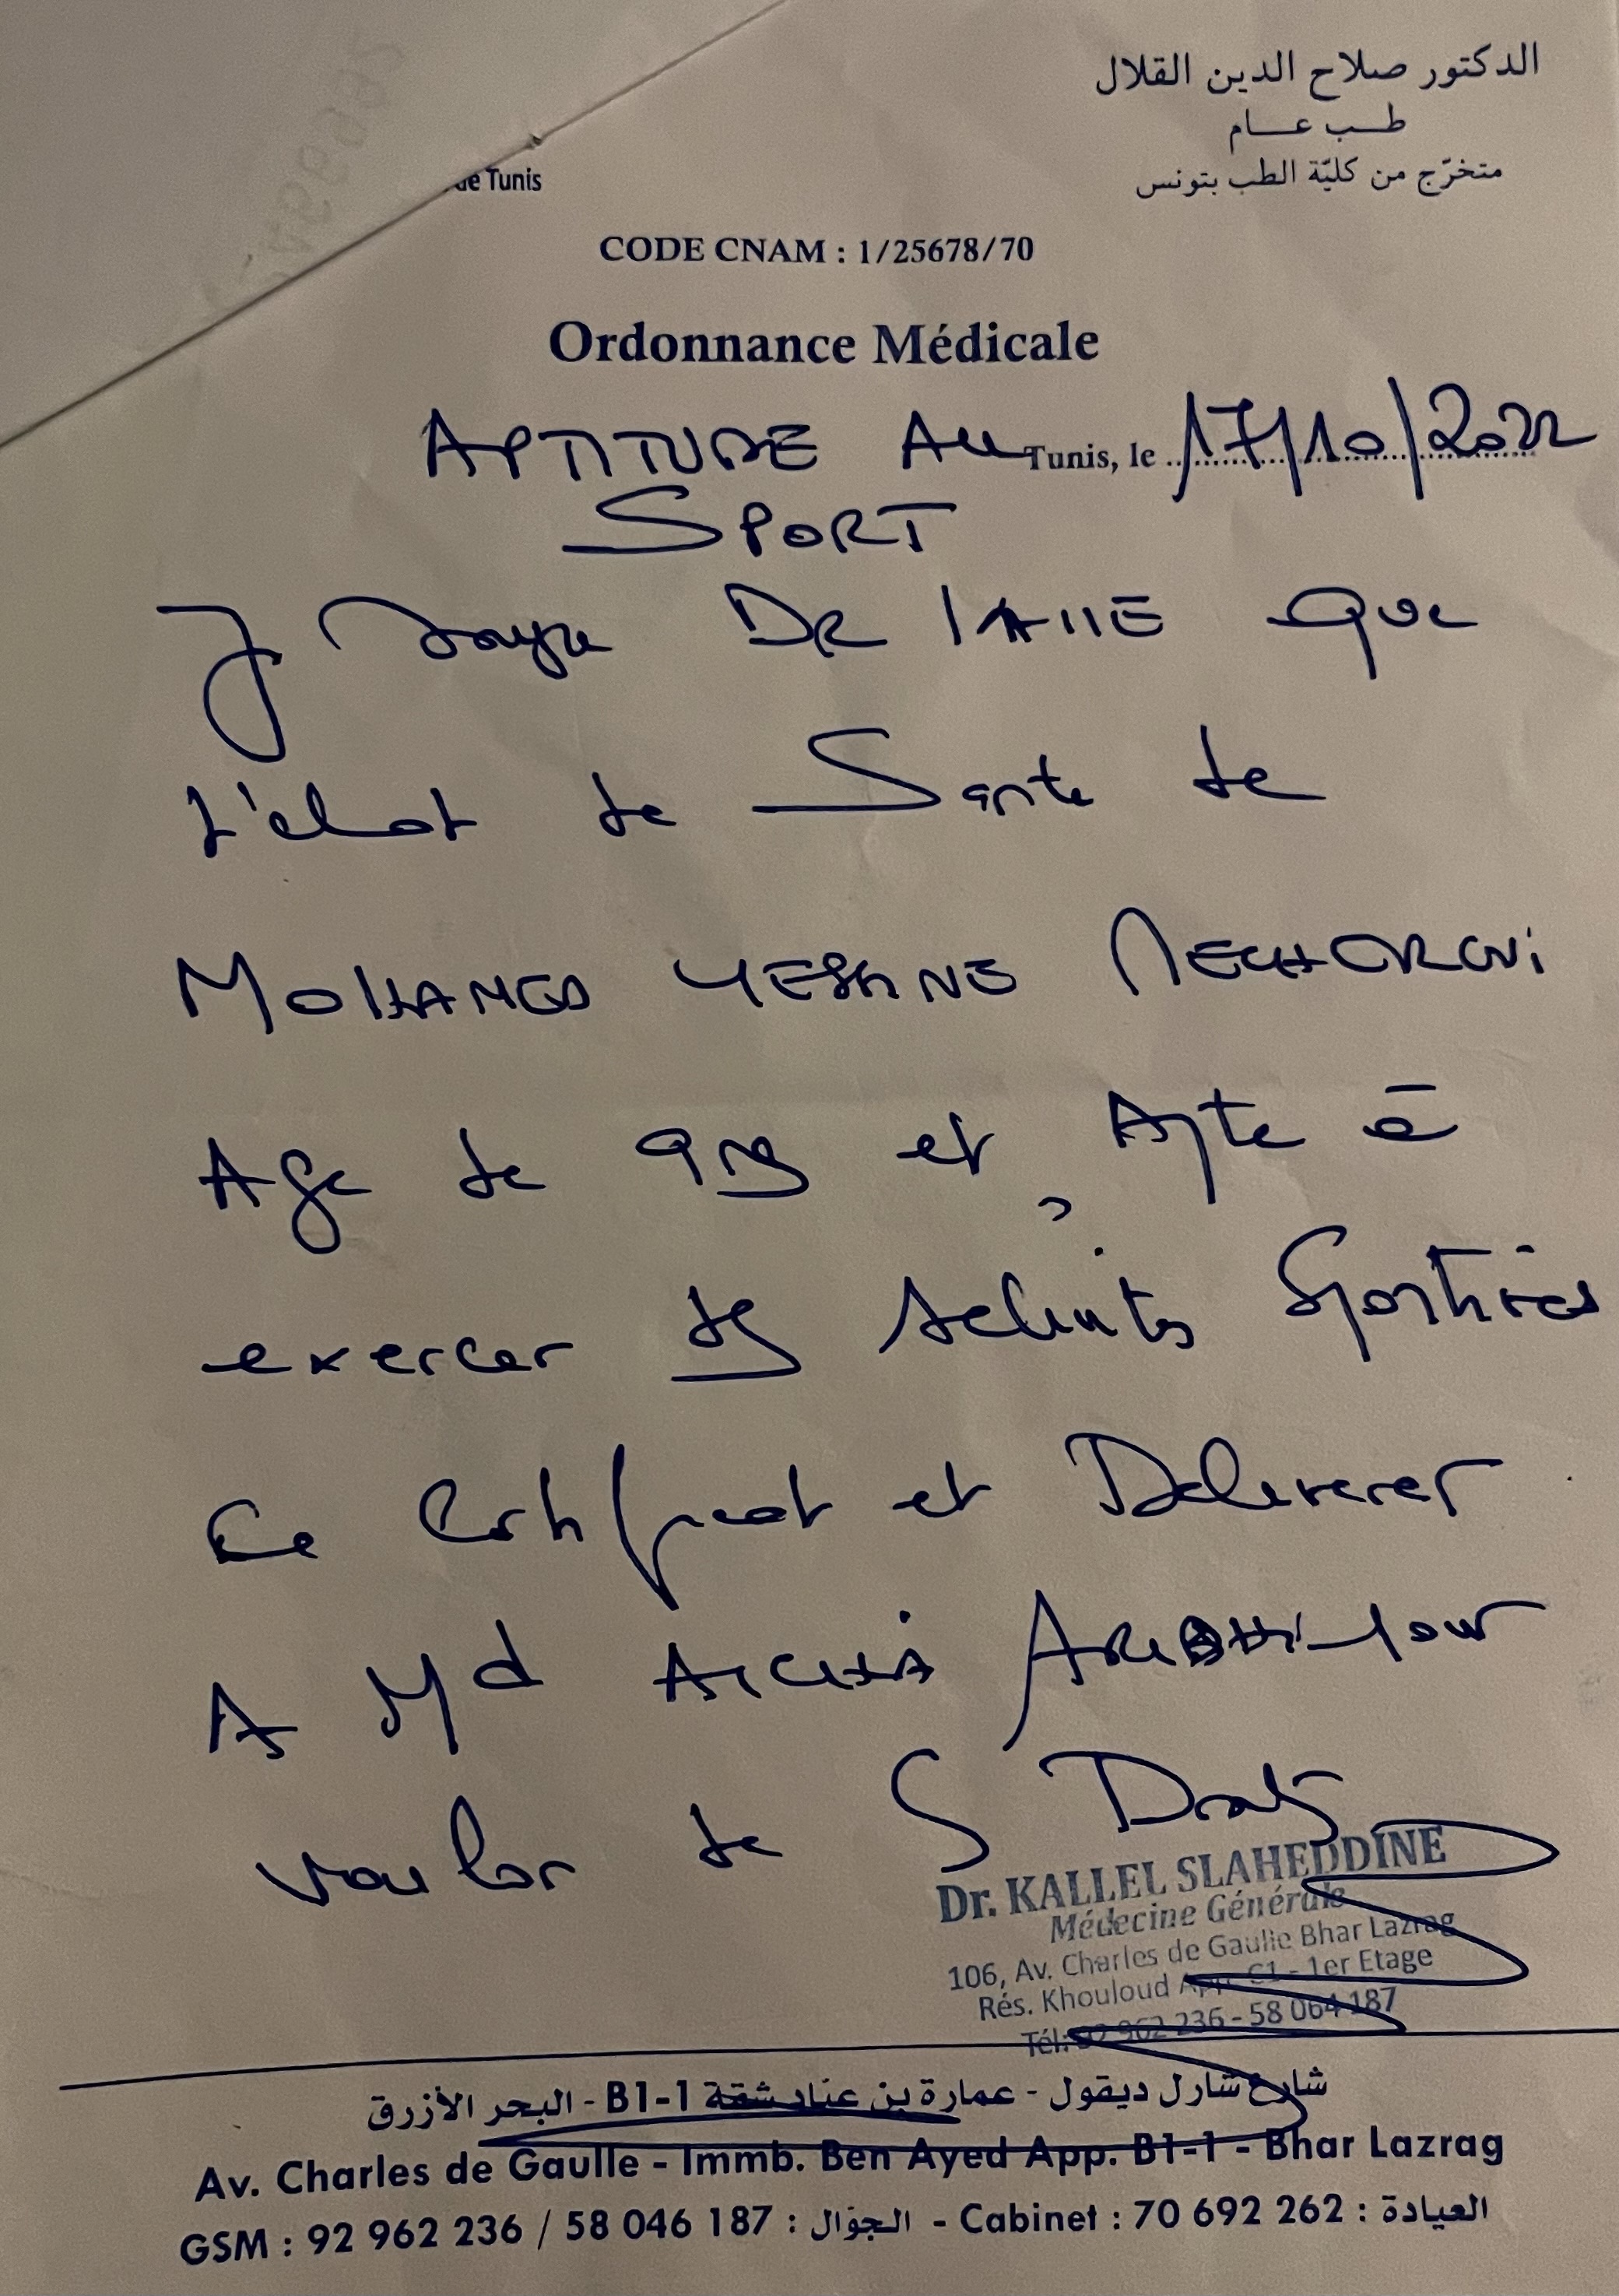 الدكتور صلاح الدين القلال
طب عام
متخرّج من كليّة الطب بتونس
de Tunis
CODE CNAM : 1/25678/70
Ordonnance Médicale
APTITUDE AU Tunis, le 17/10/2022
SPORT
DR que
L'etat de Sante de
MOHAMED YESSINE
Age de 9 et Apte à
exercer des Activites Sportives
Ce Certificat et Delivrer
A Md AICHA pour
valoir de S Droits
Dr. KALLEL SLAHEDDINE
Médecine Générale
106, Av. Charles de Gaulle Bhar Lazrag
Rés. Khouloud App. C1 - 1er Etage
Tél: 92 962 236 - 58 064 187
شارع شارل ديقول - عمارة بن عياد شقة B1-1 - البحر الأزرق
Av. Charles de Gaulle - Immb. Ben Ayed App. B1-1 - Bhar Lazrag
GSM : 92 962 236 / 58 046 187 : الجوّال - Cabinet : 70 692 262 : العيادة